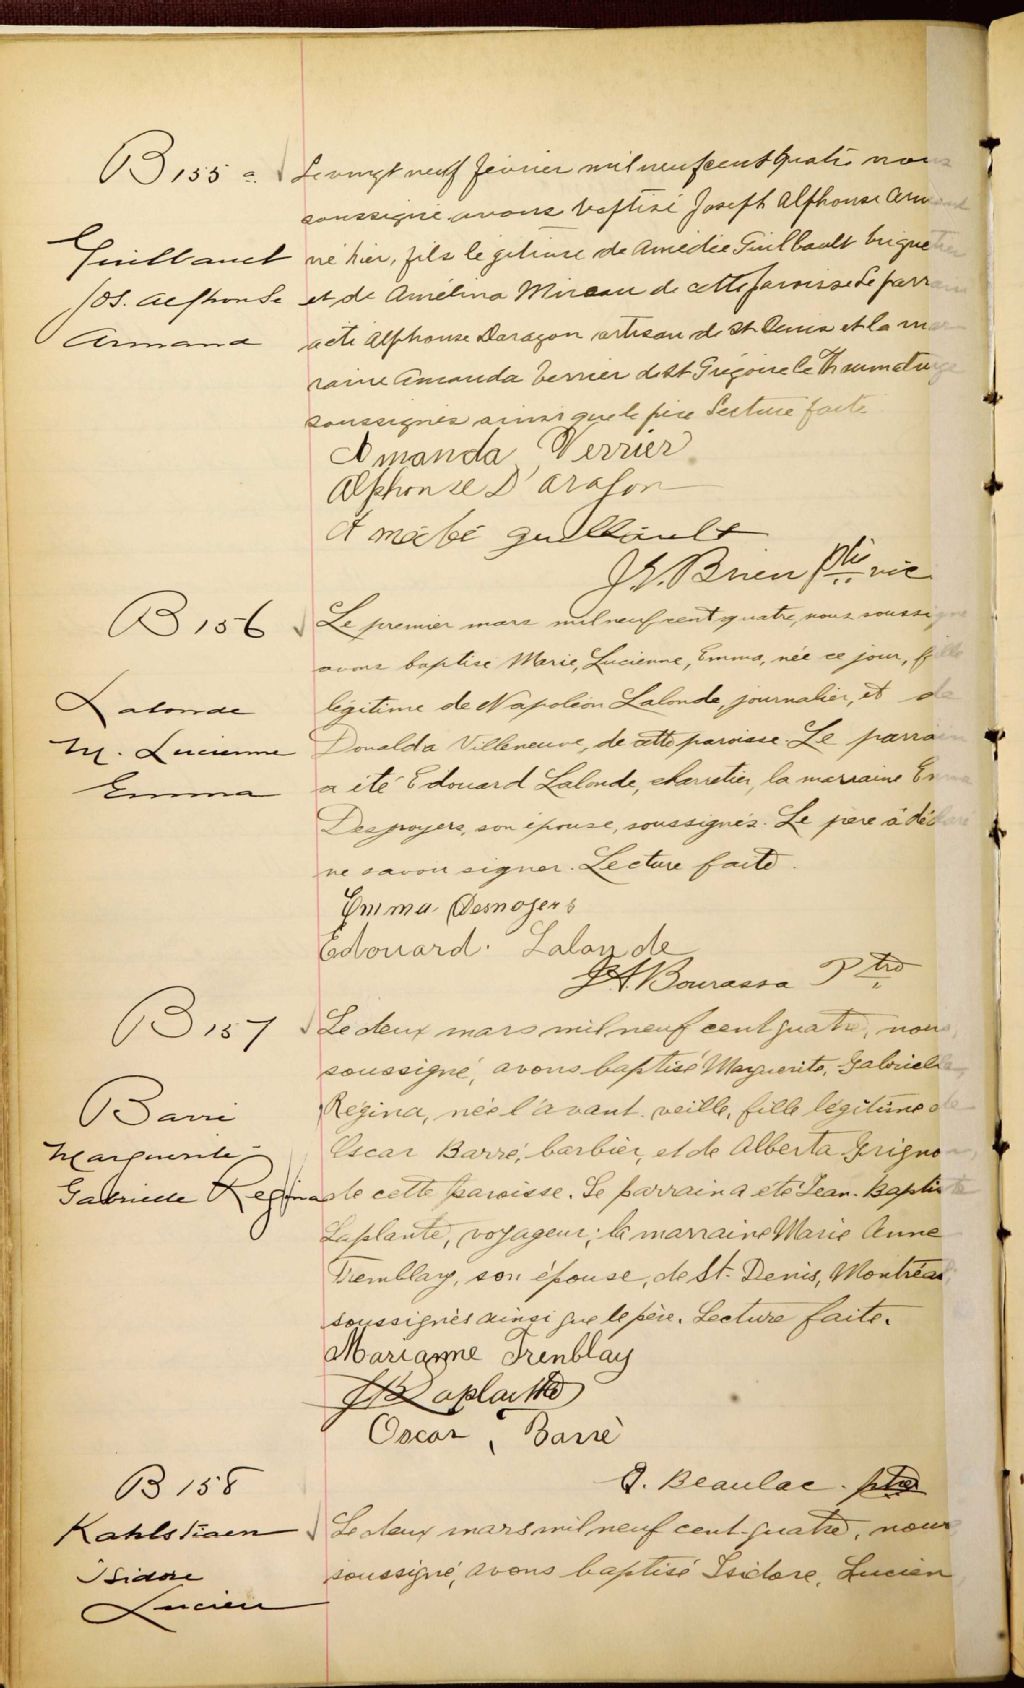 B 155 a
Guilbault
Jos. Alphonse
Armand
Le vingt neuf février mil neuf cent quatre nous
soussigné avons baptisé Joseph Alphonse Armand
né hier, fils légitime de Amédée Guilbault briquetier
et de Amélina Mireau de cette paroisse Le parrain
a été Alphonse Daragon artisan de St Denis et la mar-
raine Amanda Verrier de St Grégoire le Thaumaturge
soussignés ainsi que le père Lecture faite
Amanda Verrier
Alphonse D'aragon
guilbault
J. E. Brien ptre vic
B 156
Lalonde
M. Lucienne
Emma
Le premier mars mil neuf cent quatre, nous soussigné
avons baptisé Marie, Lucienne, Emma, née ce jour, fille
légitime de Napoléon Lalonde, journalier, et de
Donalda Villeneuve, de cette paroisse. Le parrain
a été Edouard Lalonde, charretier, la marraine Emma
Desnoyers, son épouse, soussignés. Le père a déclaré
ne savoir signer. Lecture faite.
Emma Desnoyers
Edouard. Lalonde
J A Bourassa Ptre
B 157
Barré
Marguerite
Gabrielle Regina
Le deux mars mil neuf cent quatre, nous,
soussigné, avons baptisé Marguerite, Gabrielle,
Régina, née l'avant veille, fille légitime de
Oscar Barré, barbier, et de Alberta Grignon,
de cette paroisse. Le parrain a été Jean-Baptiste
Laplante, voyageur; la marraine Marie Anne
Tremblay, son épouse, de St. Denis, Montréal
soussignés ainsi que le père. Lecture faite.
Marianne Tremblay
JB Laplante
Oscar, Barré
J. Beaulac. ptre
B 158
Isidore
Lucien
Le deux mars mil neuf cent quatre, nous,
soussigné, avons baptisé Isidore, Lucien,